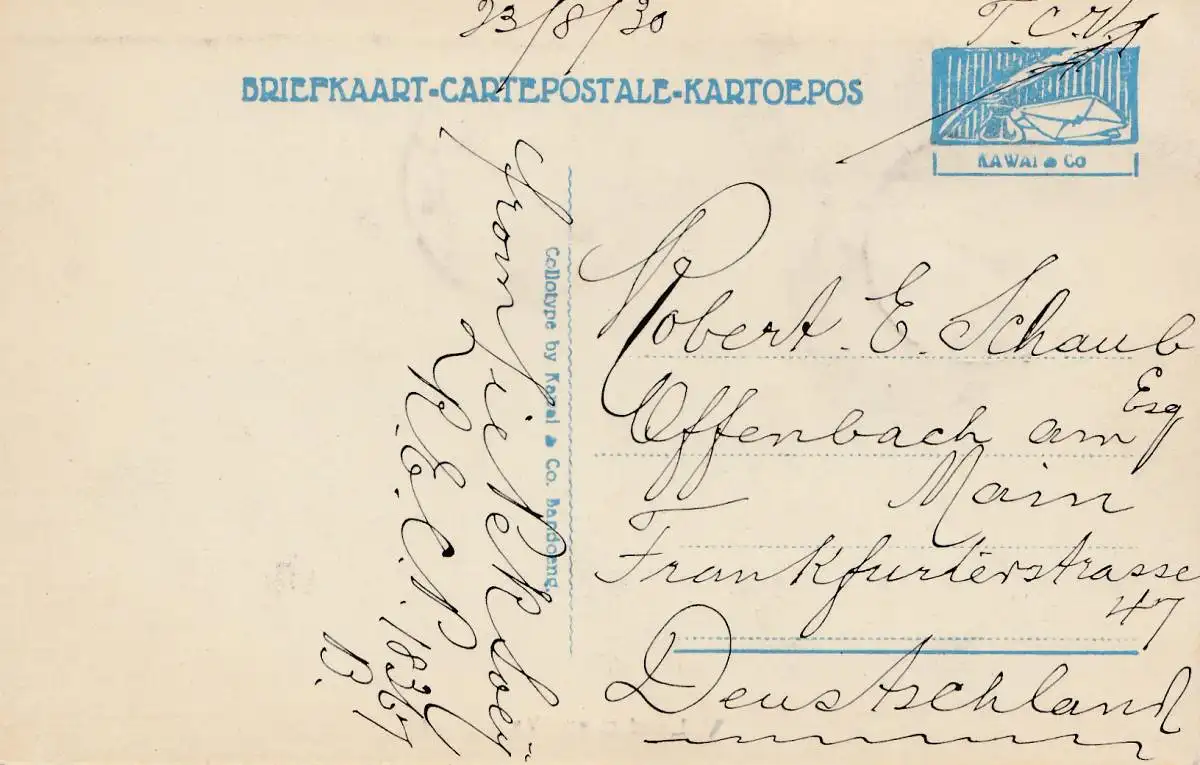 23/8/30
T.C.V.
BRIEFKAART-CARTEPOSTALE-KARTOEPOS
KAWAI & Co
Collotype by Kawai & Co. Bandoeng.
from
R.E.C.N.
B.
Robert. E. Schaub
Esq
Offenbach am
Main
Frankfurterstrasse
47
Deutschland